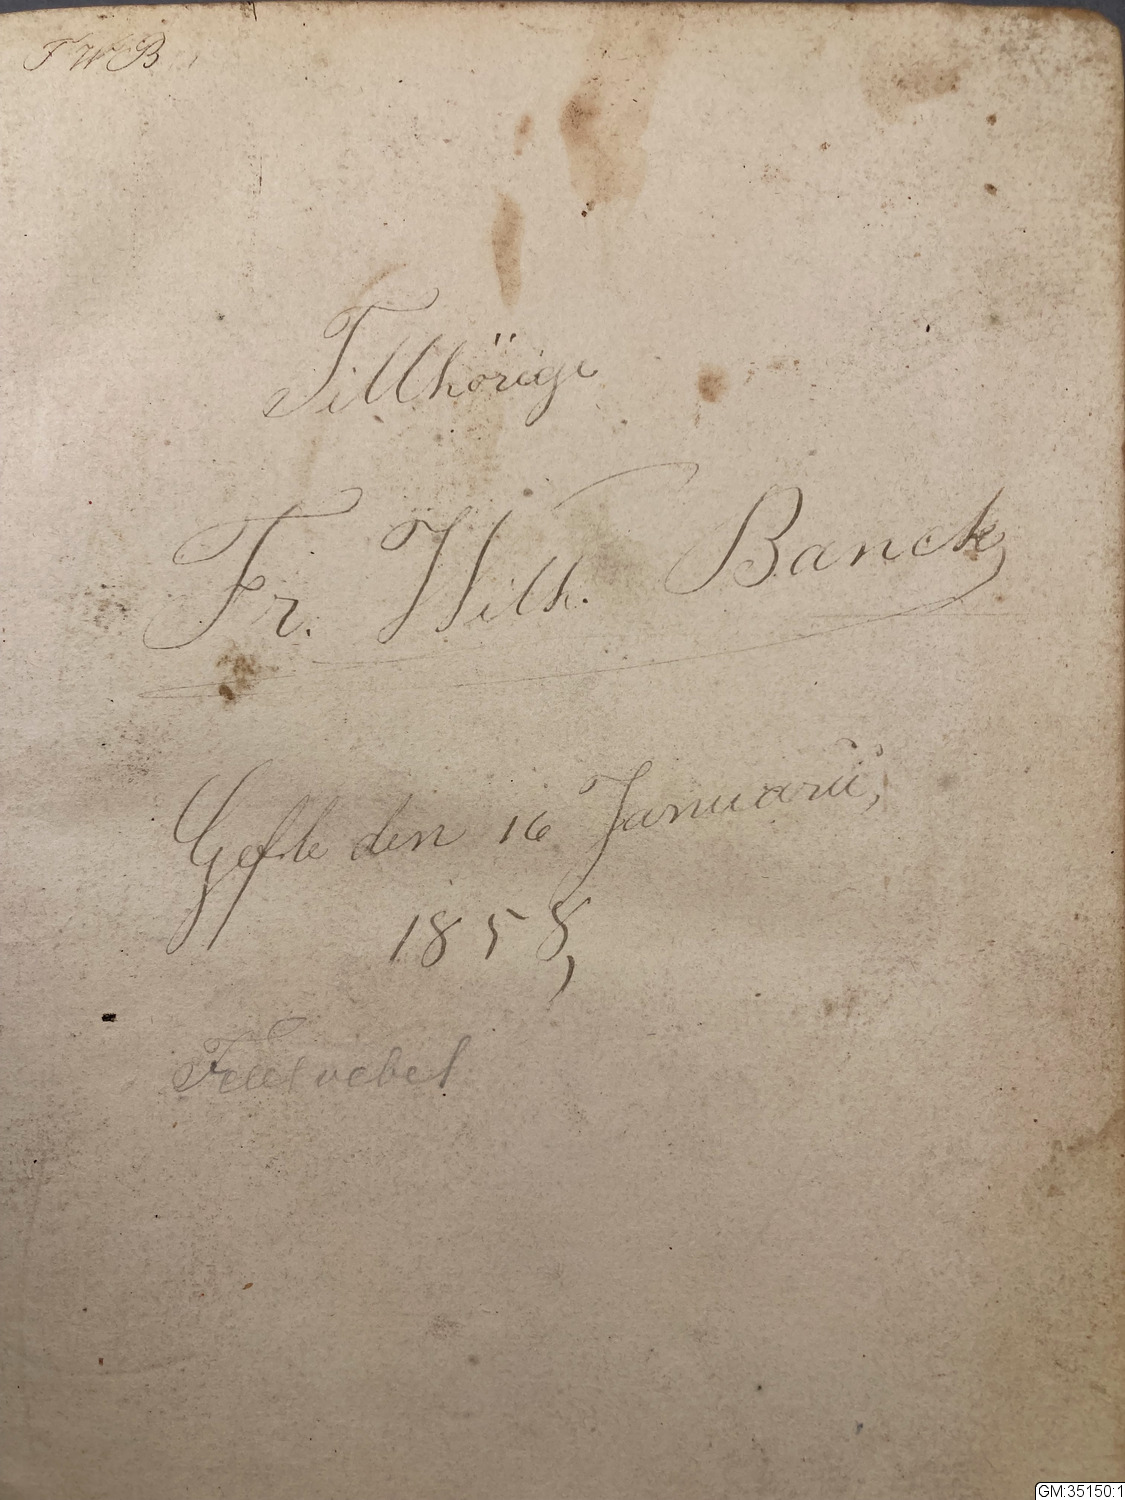 FWB
Tillhörige
Fr. Wilh. Banck,
Gefle den 16 Januarii,
1858,
GM:35150:1